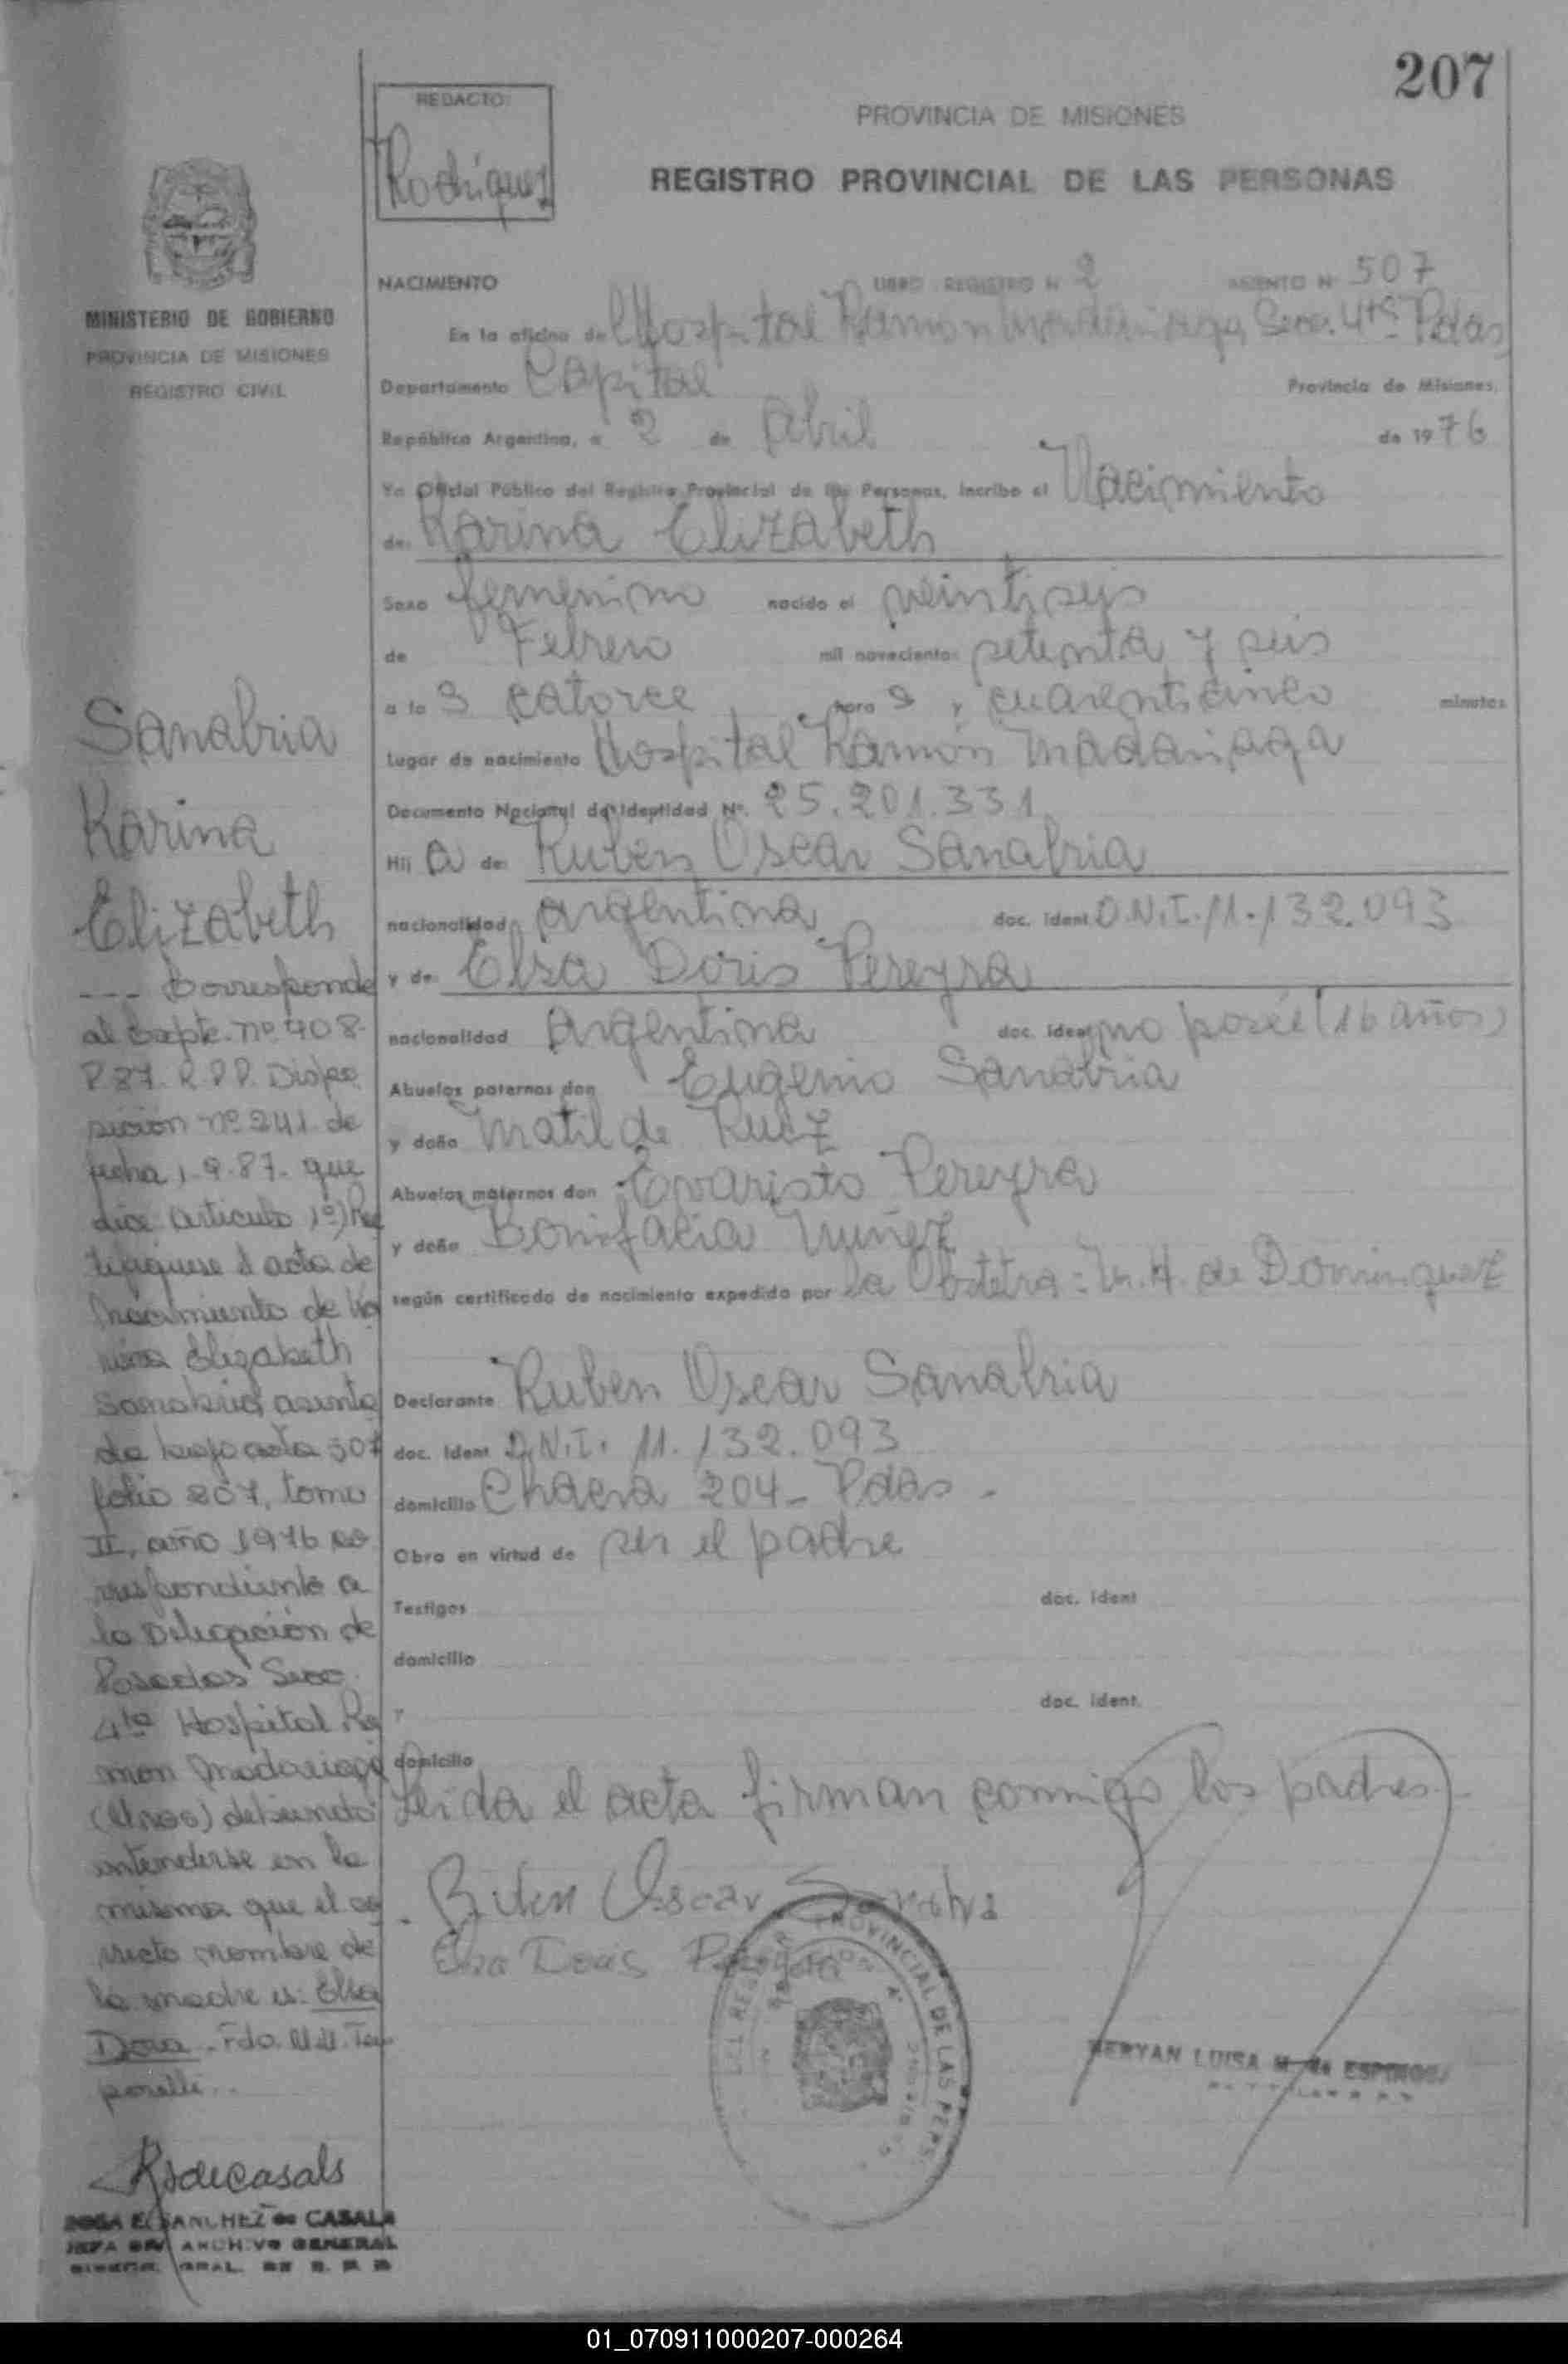 207
REDACTO:
Rodriguez
PROVINCIA DE MISIONES
REGISTRO PROVINCIAL DE LAS PERSONAS
MINISTERIO DE GOBIERNO
PROVINCIA DE MISIONES
REGISTRO CIVIL
NACIMIENTO LIBRO REGISTRO N 2 ASIENTO N 507
En la oficina del Hospital Ramon Madariaga, Secc. 4ta Pdas
Departamento Capital Provincia de Misiones,
República Argentina, a 2 de Abril de 1976
Yo Oficial Público del Registro Provincial de las Personas, incribo el Nacimiento
de: Karina Elizabeth
Sexo femenino nacido el veintiseis
de Febrero mil novecientos setenta y seis
a la s catorce hora s y cuarenticinco minutos
Lugar de nacimiento Hospital Ramón Madariaga
Documento Nacional de Identidad Nº. 25.201.331
Hij a de: Ruben Oscar Sanabria
nacionalidad argentina doc. ident D.N.I. 11.132.093
y de: Elsa Doris Pereyra
nacionalidad argentina doc. ident no posée (16 años)
Abuelos paternos don Eugenio Sanabria
y doña Matilde Ruiz
Abuelos maternos don Evaristo Pereyra
y doña Bonifacia Nuñez
según certificado de nacimiento expedido por la Obstetra: M. H. de Dominguez
Declarante Ruben Oscar Sanabria
doc. ident D.N.I. 11.132.093
domicilio Chacra 204 - Pdas -
Obra en virtud de ser el padre
Testigos doc. ident
domicilio
y doc. ident.
domicilio
Leida el acta firman conmigo los padres.-
Ruben Oscar Sanabria
Elsa Doris Pereyra
DEL REGISTRO PROVINCIAL DE LAS PERS.
NERYAN LUISA M. de ESPINOSA
Sanabria
Karina
Elizabeth
--- Corresponde
al Expte. nº 408-
R.87. R.P.P. Dispo
sición nº 241 de
fecha 1-9-87- que
dice: Articulo 1º) Rec
tifiquese el acta de
Nacimiento de Ka
rina Elizabeth
Sanabria, asenta
da bajo acta 507
folio 207, tomo
II, año 1976 co
rrespondiente a
la Delegación de
Posadas Secc.
4ta Hospital Ra
mon Madariaga
(Mnes) debiendo
entenderse en la
misma que el co
rrecto nombre de
la madre es: Elsa
Dora - Fdo.
Rsdecasals
ROSA E. SANCHEZ de CASALS
JEFA DIV. ARCHIVO GENERAL
DIRECC. GRAL. DE R. P. P.
01_070911000207-000264